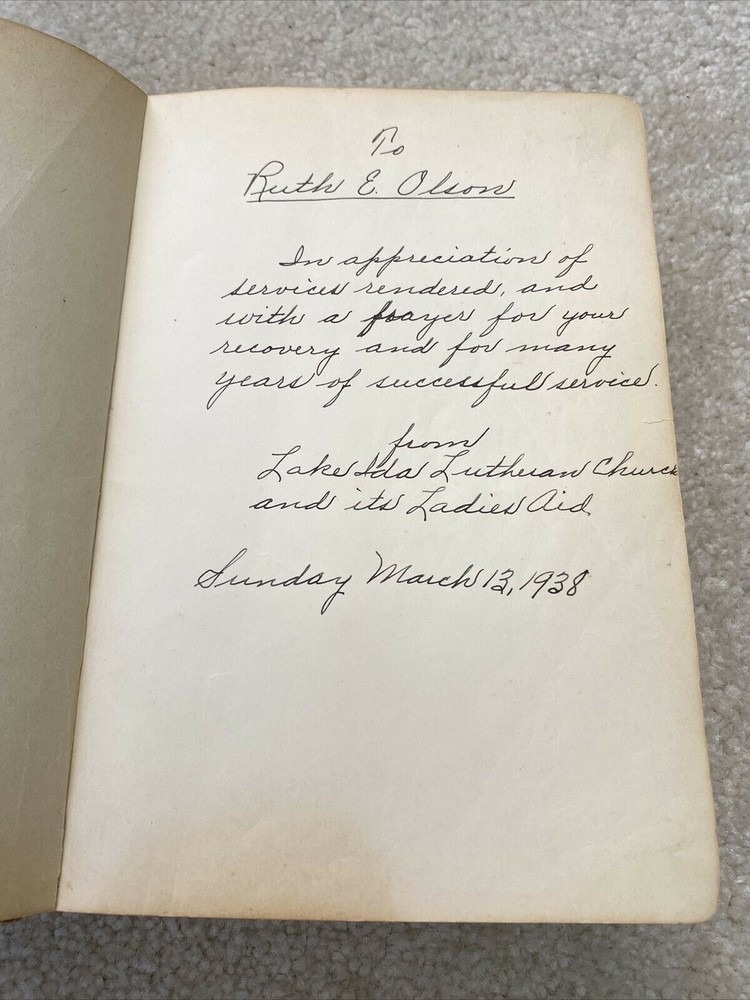 To
Ruth E. Olson
In appreciation of
services rendered, and
with a prayer for your
recovery and for many
years of successful service.
from
Lake Ida Lutheran Church
and its Ladies Aid
Sunday March 13, 1938